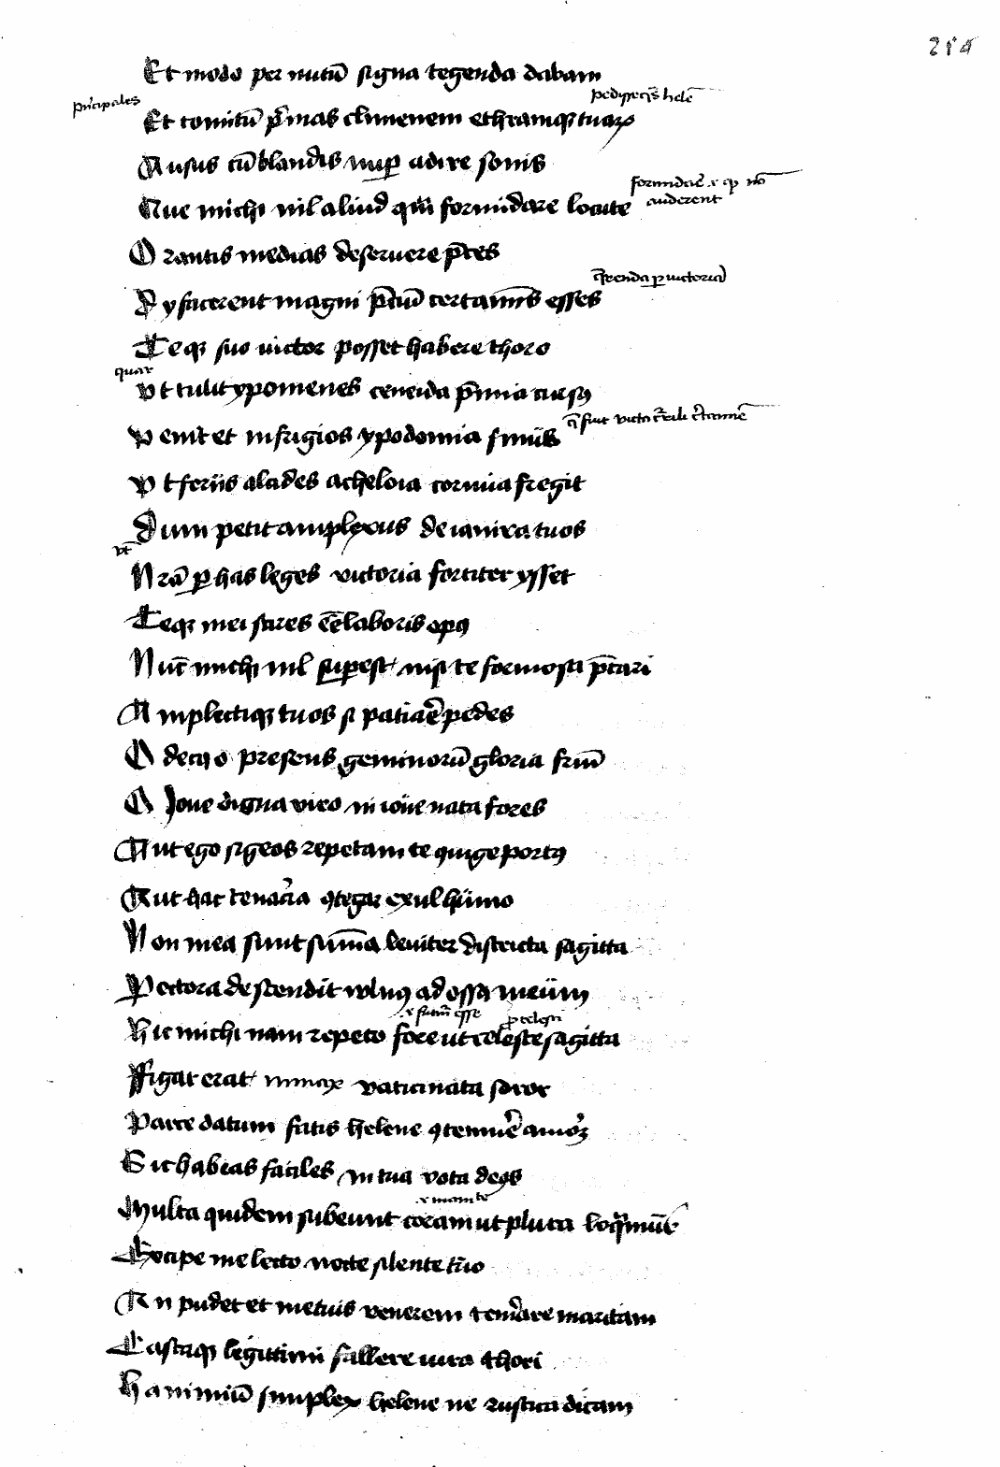 214
Et modo per nutū signa tegenda dabam
pedisseq̄s helē
principales
Et comitū p̄mas climenem ethramqꝫ tuaꝝ
Ausus cū blandis nuꝑ adire sonis
formidarē
auderent
Que michi nil aliud qm̄ formidare locute
Orantis medias deseruere p̄ces
q̄renda ꝑ uictoriā
Dy facerent magni p̄ciū certaminis esses
Teqꝫ suo uictor posset habere thoro
quar
Vt tulit ypomenes ceneida p̄mia cursꝰ
Venit et in frigios ypodomia sinus
Vt feriis alcides acheloia cornua fregit
Dum petit amplexus deianira tuos
vt
Nrā ꝑ has leges victoria fortiter ysset
Teqꝫ mei scires eē laboris opꝰ
Nūc michi nil suꝑest nisi te formosa p̄cari
Amplectiqꝫ tuos si patiarē pedes
O decꝰ o presens geminorū gloria frm̄
O Joue digna viro ni ioue nata fores
Aut ego sigeos repetam te ꝯiuge portꝰ
Aut hac tenaria ꝯtegar exul humo
Non mea sunt summa leuiter districta sagitta
Pectora descendit wlnꝰ ad ossa meum
fut̄m esse
ꝓ celesti
Hic michi nam repeto fore ut celeste sagitta
Figar erat verax vaticinata soror
Parce datum fatis helene ꝯtemnē amoꝝ
Sic habeas faciles in tua vota deos
Multa quidem subeunt coram ut plura loq̄mur
Excipe me lecto nocte silente tuo
An pudet et metuis venerem temerare maritam
Castaqꝫ legittimi fallere iura thori
Ha nimiū simplex helene ne rustica dicam